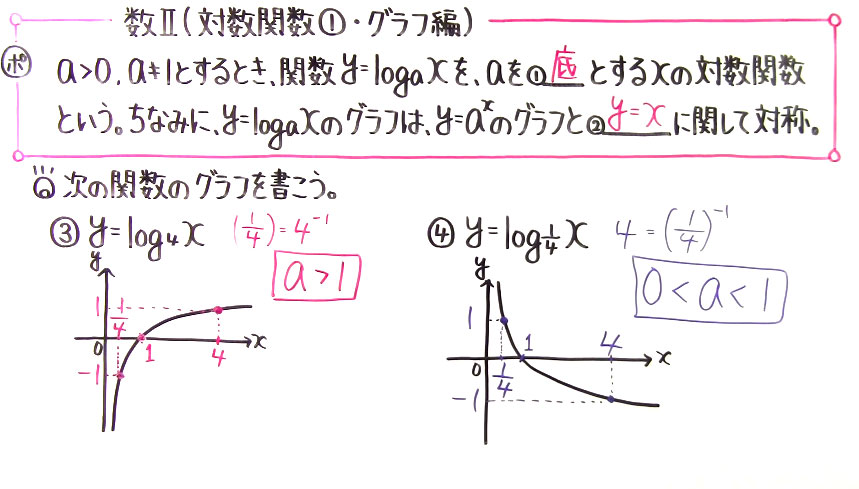 数Ⅱ(対数関数①・グラフ編)
ポ a>0, a≠1とするとき、関数 y=logₐxを、aを①底とするxの対数関数
という。ちなみに、y=logₐxのグラフは、y=aˣのグラフと②y=xに関して対称。
次の関数のグラフを書こう。
③ y=log₄x (1/4)=4⁻¹
a>1
y
1
1/4
0
1
4
x
-1
④ y=log_{1/4}x 4=(1/4)⁻¹
0<a<1
y
1
1
4
x
0
1/4
-1